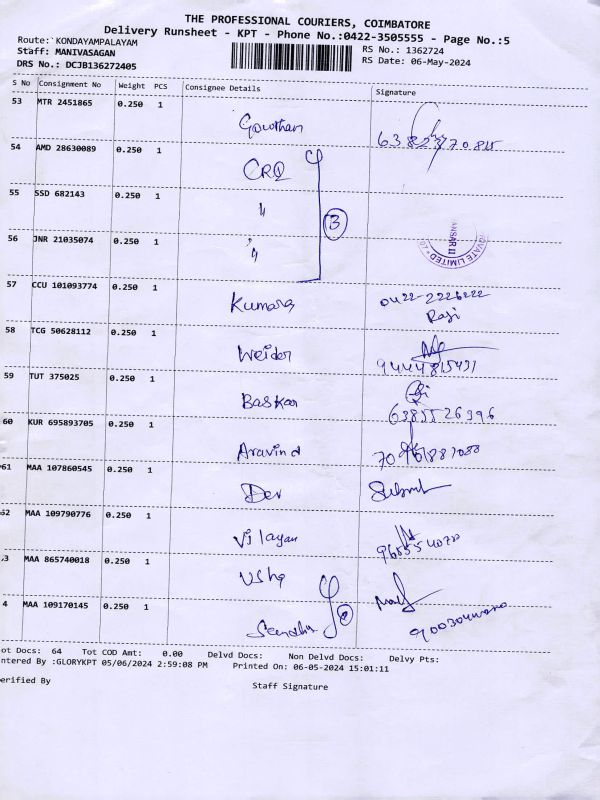 THE PROFESSIONAL COURIERS, COIMBATORE
Delivery Runsheet - KPT - Phone No.:0422-3505555 - Page No.:5
Route: KONDAYAMPALAYAM
RS No.: 1362724
Staff: MANIVASAGAN
RS Date: 06-May-2024
DRS No.: DCJB136272405
S No Consignment No Weight PCS Consignee Details Signature
53 MTR 2451865 0.250 1
Gowtham
54 AMD 28630089 0.250 1
55 SSD 682143 0.250 1
"
3
56 JNR 21035074 0.250 1
"
ANSAR II
VATE LIMITED
57 CCU 101093774 0.250 1
Kumara 0422-2226222
Raji
58 TCG 50628112 0.250 1
Weider
9444815431
59 TUT 375025 0.250 1
Baskar 6385526396
60 KUR 695893705 0.250 1
Aravind
61 MAA 107860545 0.250 1
Dev
62 MAA 109790776 0.250 1
Vilayan
.3 MAA 865740018 0.250 1
Usha
4 MAA 109170145 0.250 1
ot Docs: 64 Tot COD Amt: 0.00 Delvd Docs: Non Delvd Docs: Delvy Pts:
ntered By :GLORYKPT 05/06/2024 2:59:08 PM Printed On: 06-05-2024 15:01:11
erified By
Staff Signature